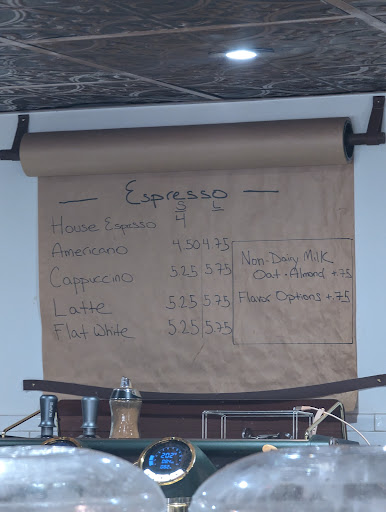 — Espresso —
S L
House Espresso 4
Americano 4.50 4.75
Cappuccino 5.25 5.75
Latte 5.25 5.75
Flat White 5.25 5.75
Non-Dairy Milk
Oat · Almond +.75
Flavor Options +.75
202